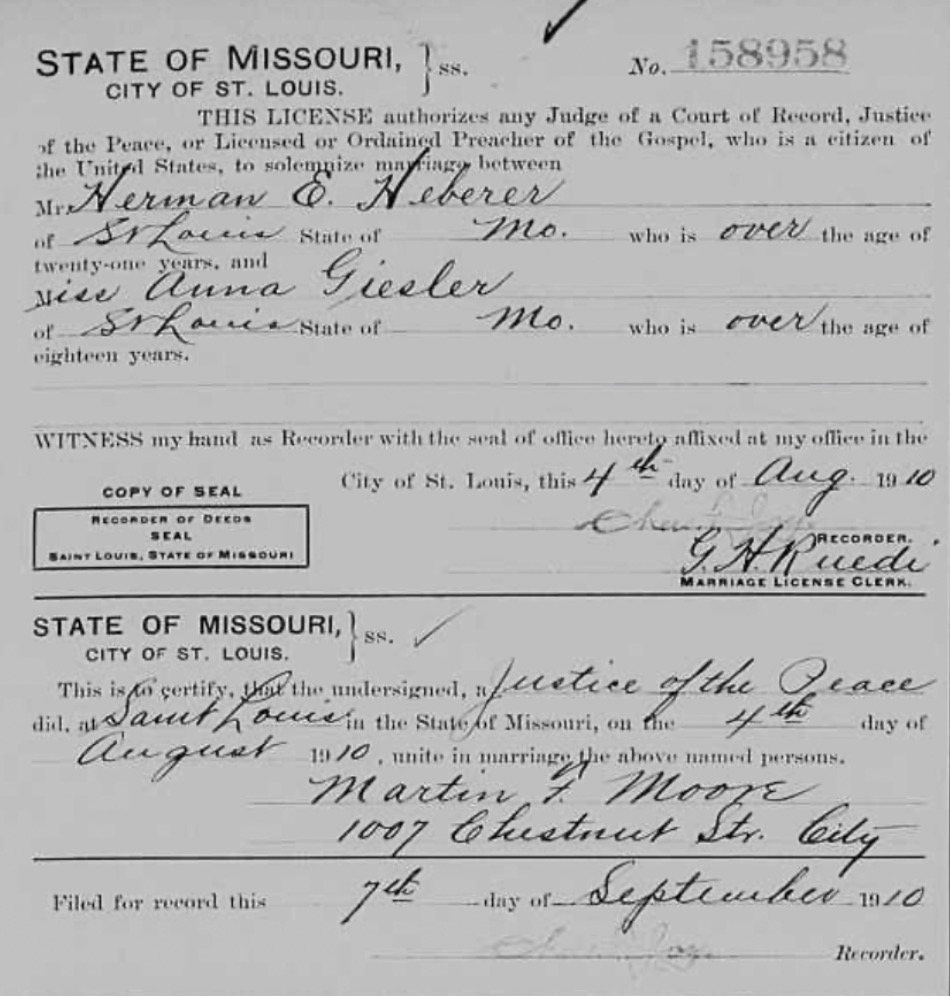 STATE OF MISSOURI, } ss. No. 158958
CITY OF ST. LOUIS.
THIS LICENSE authorizes any Judge of a Court of Record, Justice
of the Peace, or Licensed or Ordained Preacher of the Gospel, who is a citizen of
the United States, to solemnize marriage between
Mr. Herman E. Heberer
of St Louis State of Mo. who is over the age of
twenty-one years, and
Miss Anna Giesler
of St Louis State of Mo. who is over the age of
eighteen years.
WITNESS my hand as Recorder with the seal of office hereto affixed at my office in the
City of St. Louis, this 4th day of Aug. 1910
COPY OF SEAL
RECORDER OF DEEDS
SEAL
SAINT LOUIS, STATE OF MISSOURI
RECORDER.
G. H. Ruedi
MARRIAGE LICENSE CLERK.
STATE OF MISSOURI, } ss.
CITY OF ST. LOUIS.
This is to certify, that the undersigned, a Justice of the Peace
did, at Saint Louis in the State of Missouri, on the 4th day of
August 1910, unite in marriage the above named persons.
Martin F. Moore
1007 Chestnut Str. City
Filed for record this 7th day of September 1910
Recorder.